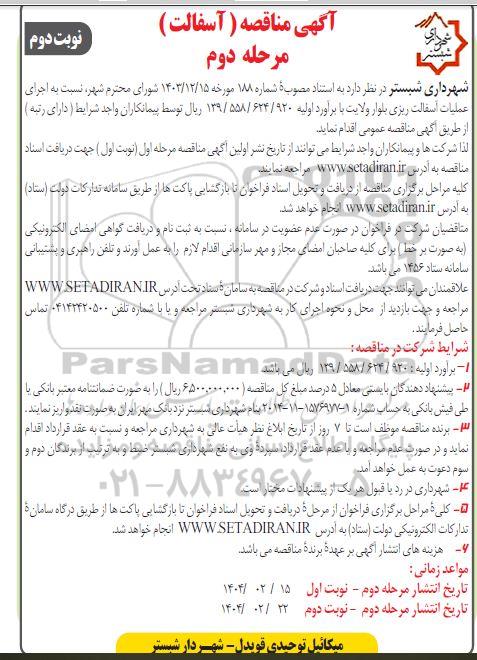 آگهی مناقصه ( آسفالت )
مرحله دوم
نوبت دوم
شهرداری شبستر
شهرداری شبستر در نظر دارد به استناد مصوبهٔ شماره ۱۸۸ مورخه ۱۴۰۳/۱۲/۱۵ شورای محترم شهر، نسبت به اجرای
عملیات آسفالت ریزی بلوار ولایت با برآورد اولیه ۹۲۰ / ۶۲۴ / ۵۵۸ / ۱۳۹ ریال توسط پیمانکاران واجد شرایط ( دارای رتبه )
از طریق آگهی مناقصه عمومی اقدام نماید.
لذا شرکت ها و پیمانکاران واجد شرایط می توانند از تاریخ نشر اولین آگهی مناقصه مرحله اول (نوبت اول ) جهت دریافت اسناد
مناقصه به آدرس www.setadiran.ir مراجعه نمایند.
کلیه مراحل برگزاری مناقصه از دریافت و تحویل اسناد فراخوان تا بازگشایی پاکت ها از طریق سامانه تدارکات دولت (ستاد)
به آدرس www.setadiran.ir انجام خواهد شد.
متقاضیان شرکت در فراخوان در صورت عدم عضویت در سامانه ، نسبت به ثبت نام و دریافت گواهی امضای الکترونیکی
(به صورت بر خط ) برای کلیه صاحبان امضای مجاز و مهر سازمانی اقدام لازم را به عمل آورند و تلفن راهبری و پشتیبانی
سامانه ستاد ۱۴۵۶ می باشد.
علاقمندان می توانند جهت دریافت اسناد و شرکت در مناقصه به سامانهٔ ستاد تحت آدرس WWW.SETADIRAN.IR
مراجعه و جهت بازدید از محل و نحوه اجرای کار به شهرداری شبستر مراجعه و یا با شماره تلفن ۰۴۱۴۲۴۲۰۵۰۰ تماس
حاصل فرمایند.
شرایط شرکت در مناقصه :
۱- برآورد اولیه : ۹۲۰ / ۶۲۴ / ۵۵۸ / ۱۳۹ ریال می باشد.
۲- پیشنهاد دهندگان بایستی معادل ۵ درصد مبلغ کل مناقصه ( ۶,۵۰۰,۰۰۰,۰۰۰ ریال ) را به صورت ضمانتنامه معتبر بانکی یا
طی فیش بانکی به حساب شماره ۱-۱۵۷۶۹۷۷-۱۱-۲۰۱۴ بنام شهرداری شبستر نزد بانک مهر ایران به صورت نقد واریز نمایند .
۳- برنده مناقصه موظف است تا ۷ روز از تاریخ ابلاغ نظر هیأت عالی به شهرداری مراجعه و نسبت به عقد قرارداد اقدام
نماید و در صورت عدم مراجعه و یا عدم عقد قرارداد، سپردهٔ وی به نفع شهرداری شبستر ضبط و به ترتیب از برندگان دوم و
سوم دعوت به عمل خواهد آمد.
۴- شهرداری در رد یا قبول هر یک از پیشنهادات مختار است.
۵- کلیهٔ مراحل برگزاری فراخوان از مرحلهٔ دریافت و تحویل اسناد فراخوان تا بازگشایی پاکت ها از طریق درگاه سامانهٔ
تدارکات الکترونیکی دولت (ستاد) به آدرس WWW.SETADIRAN.IR انجام خواهد شد.
۶- هزینه های انتشار آگهی بر عهدهٔ برندهٔ مناقصه می باشد.
مواعد زمانی :
تاریخ انتشار مرحله دوم - نوبت اول ۱۵ / ۰۲ / ۱۴۰۴
تاریخ انتشار مرحله دوم - نوبت دوم ۲۲ / ۰۲ / ۱۴۰۴
میکائیل توحیدی قویدل - شهردار شبستر
ParsNamadData
۰۲۱-۸۸۳۴۹۶۷۰-۵